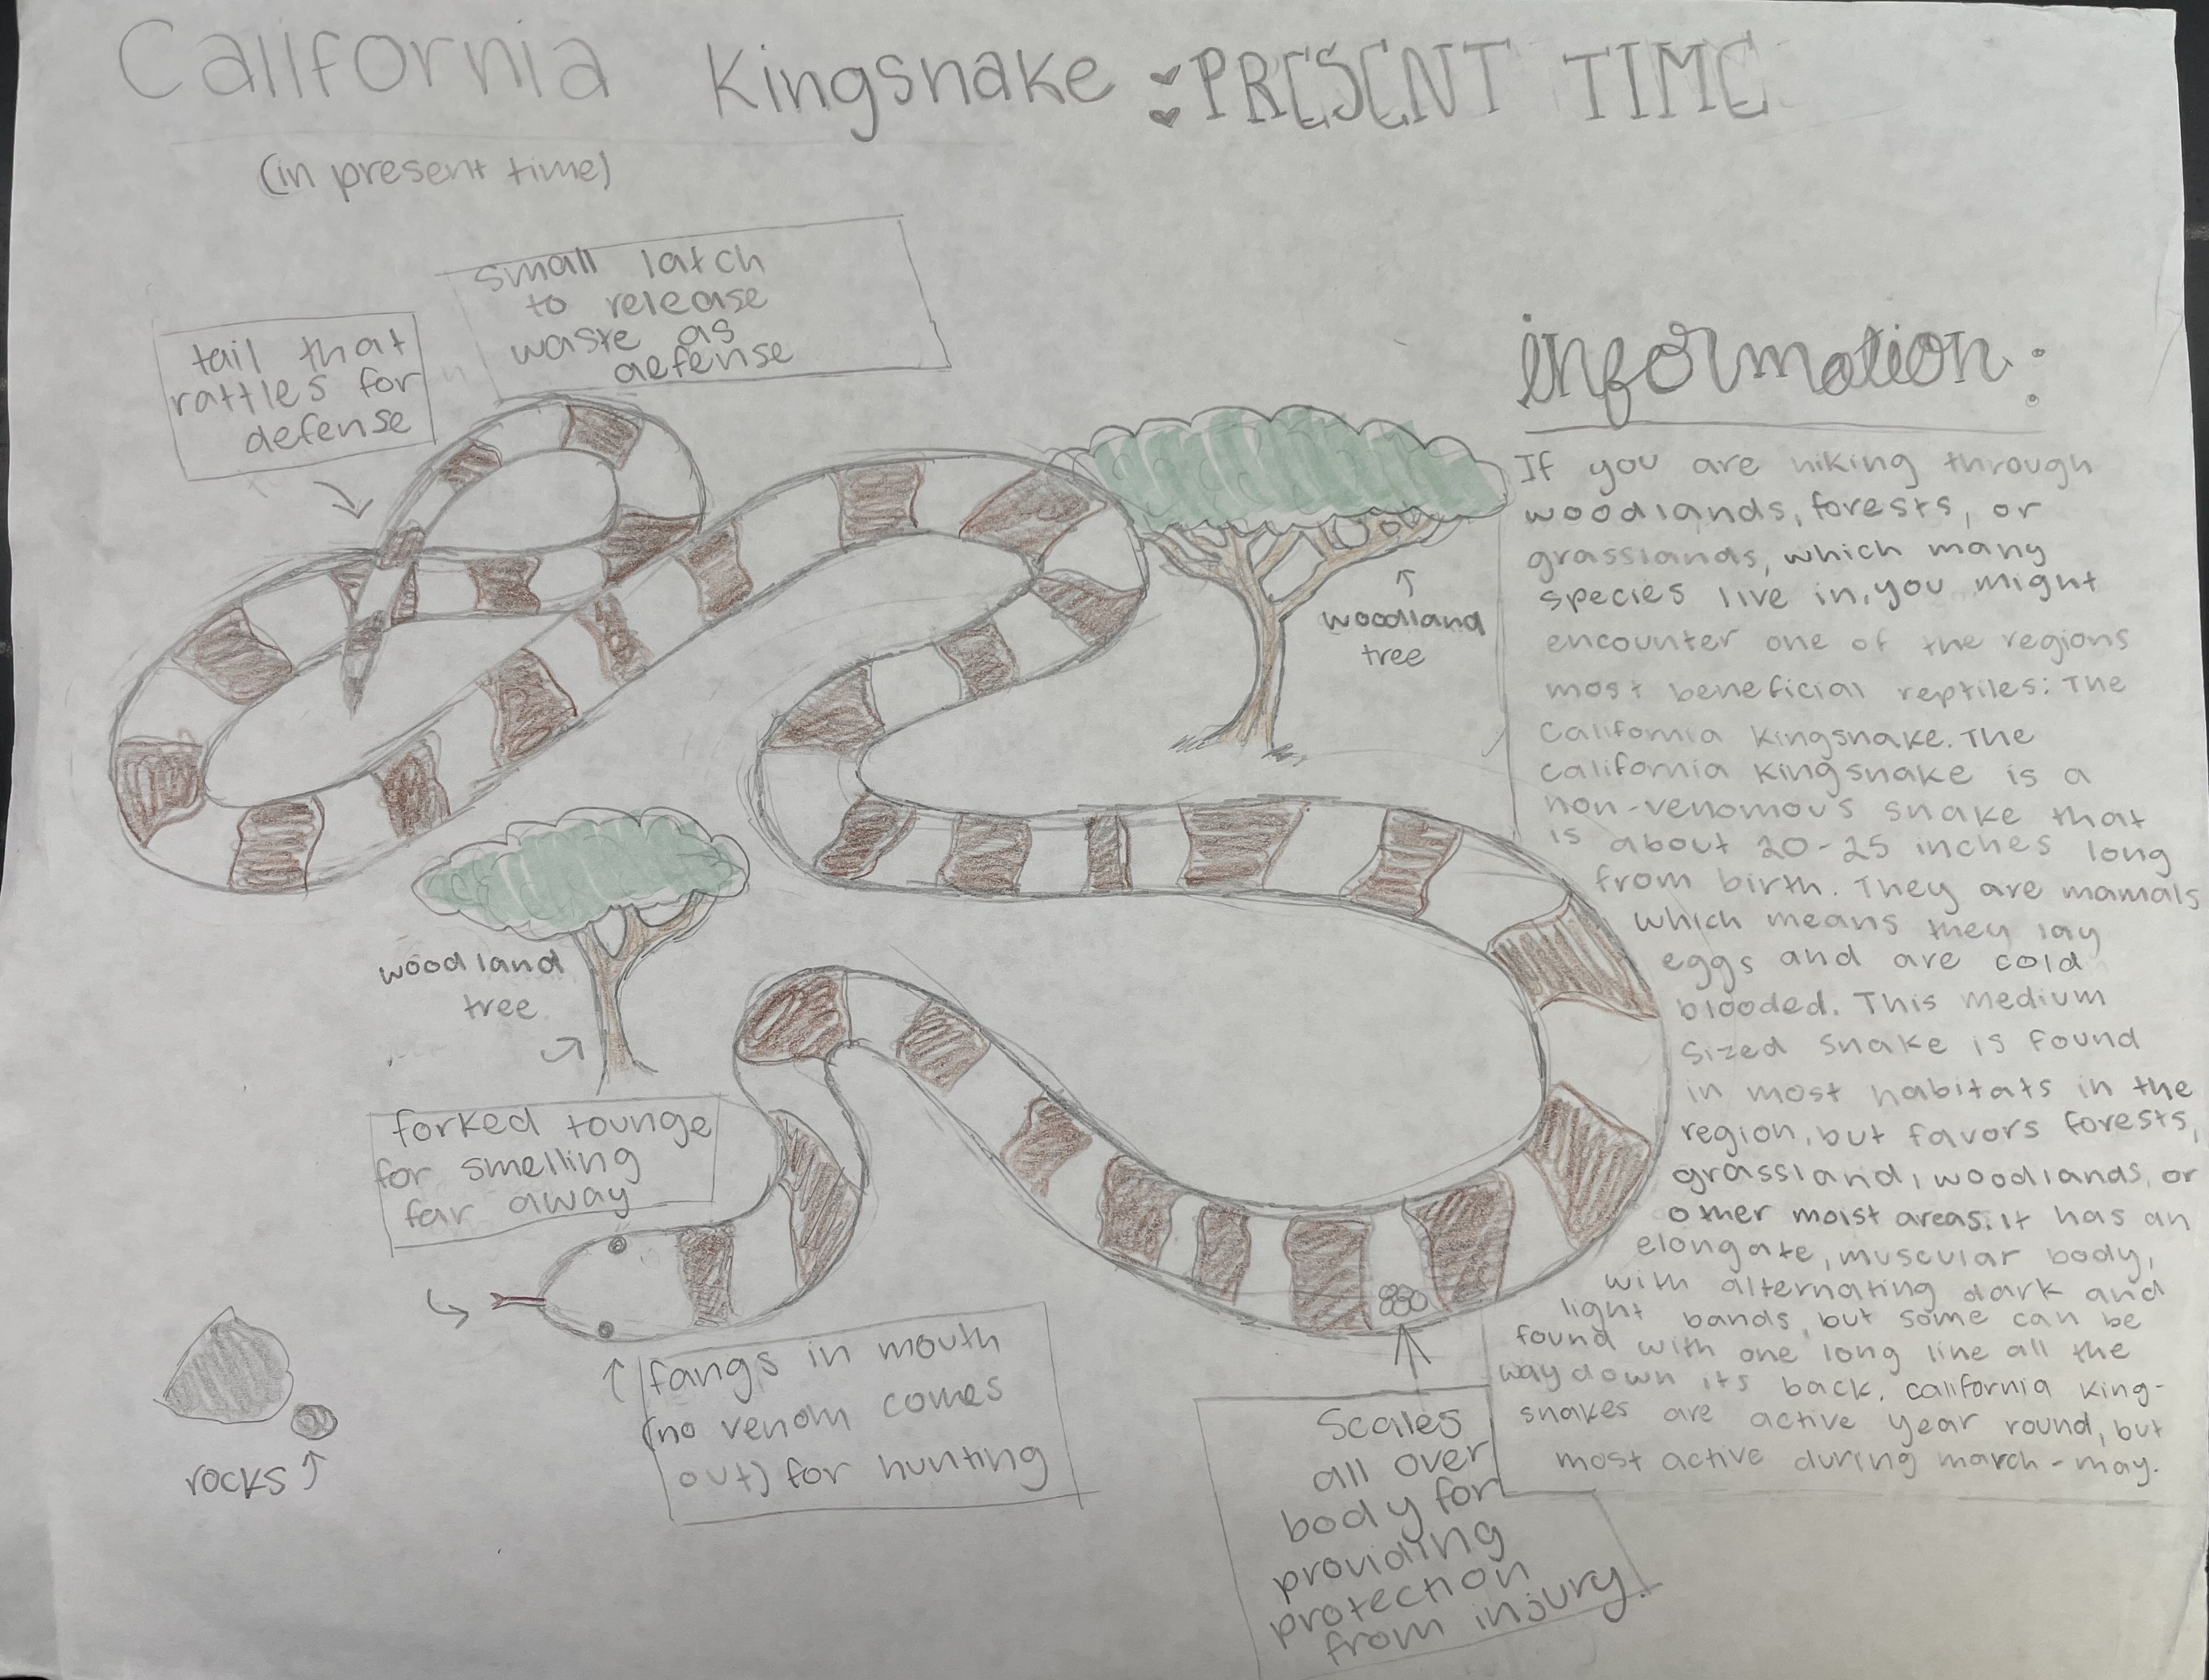 California Kingsnake : PRESENT TIME
(in present time)
small latch
to release
waste as
defense
tail that
rattles for
defense
information:
If you are hiking through
woodlands, forests, or
grasslands, which many
species live in, you might
encounter one of the regions
most beneficial reptiles: The
California Kingsnake. The
California Kingsnake is a
non-venomous snake that
is about 20-25 inches long
from birth. They are mamals
which means they lay
eggs and are cold
blooded. This medium
sized snake is found
in most habitats in the
region, but favors forests,
grassland, woodlands, or
other moist areas. it has an
elongate, muscular body,
with alternating dark and
light bands, but some can be
found with one long line all the
way down its back. California King-
snakes are active year round, but
most active during march - may.
woodland
tree
woodland
tree
forked tounge
for smelling
far away
fangs in mouth
(no venom comes
out) for hunting
rocks
Scales
all over
body for
providing
protection
from injury.